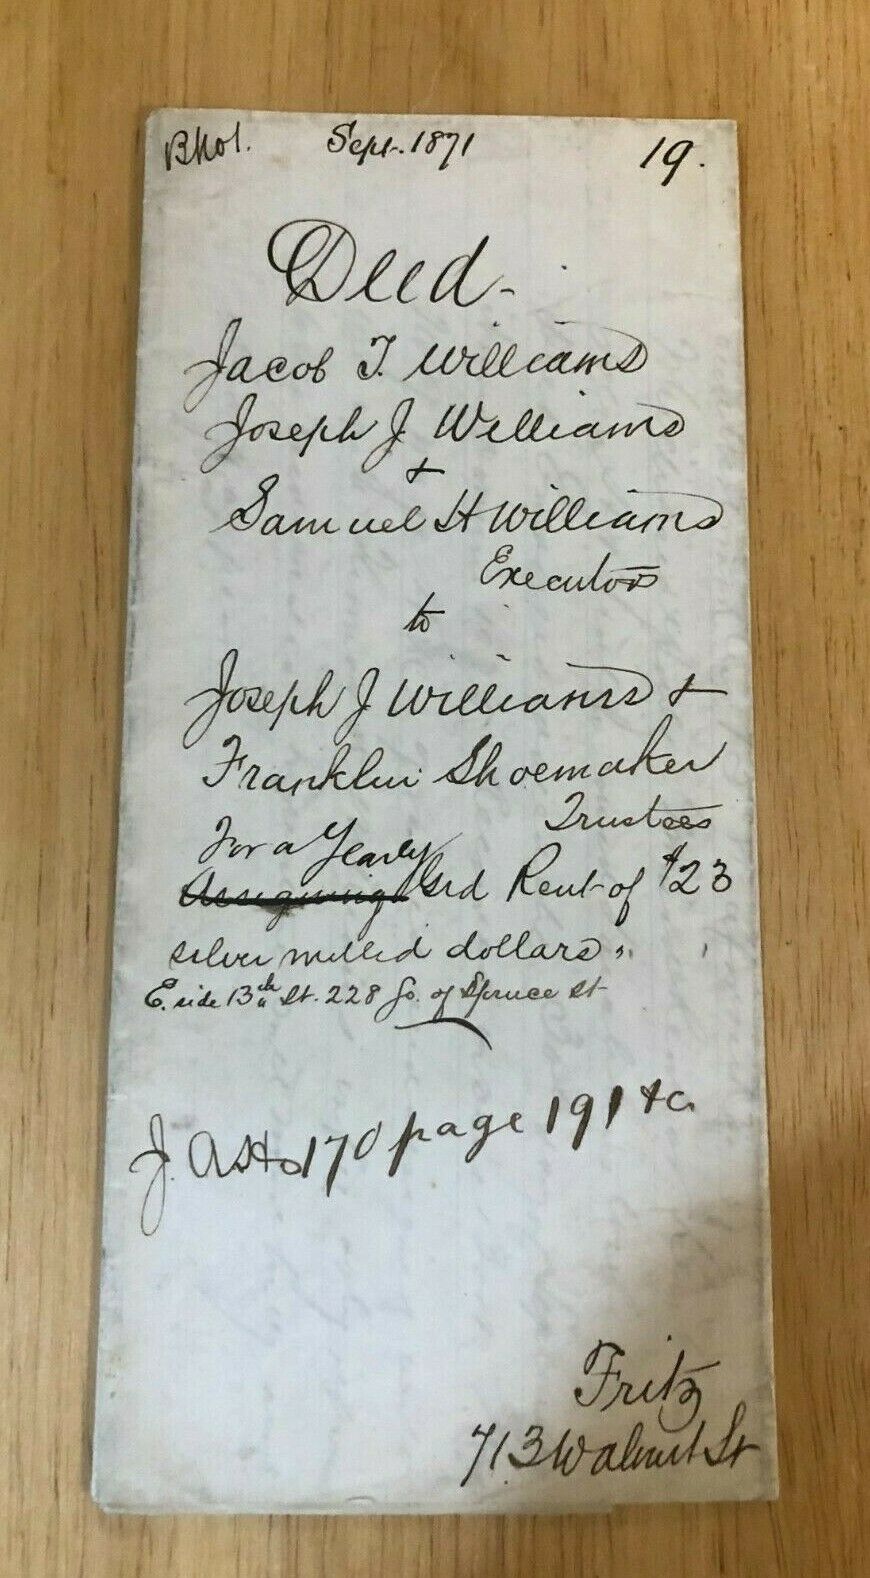 Bk No 1. Sept. 1871 19.
Deed -
Jacob T. Williams
Joseph J Williams
+
Samuel H Williams
Executors
to
Joseph J Williams +
Franklin Shoemaker
Trustees
For a Yearly
Assigning Grd Rent of $23
silver milled dollars,
E. side 13th St. 228 So. of Spruce St
J. A. H 170 page 191 +c.
Fritz
713 Walnut St